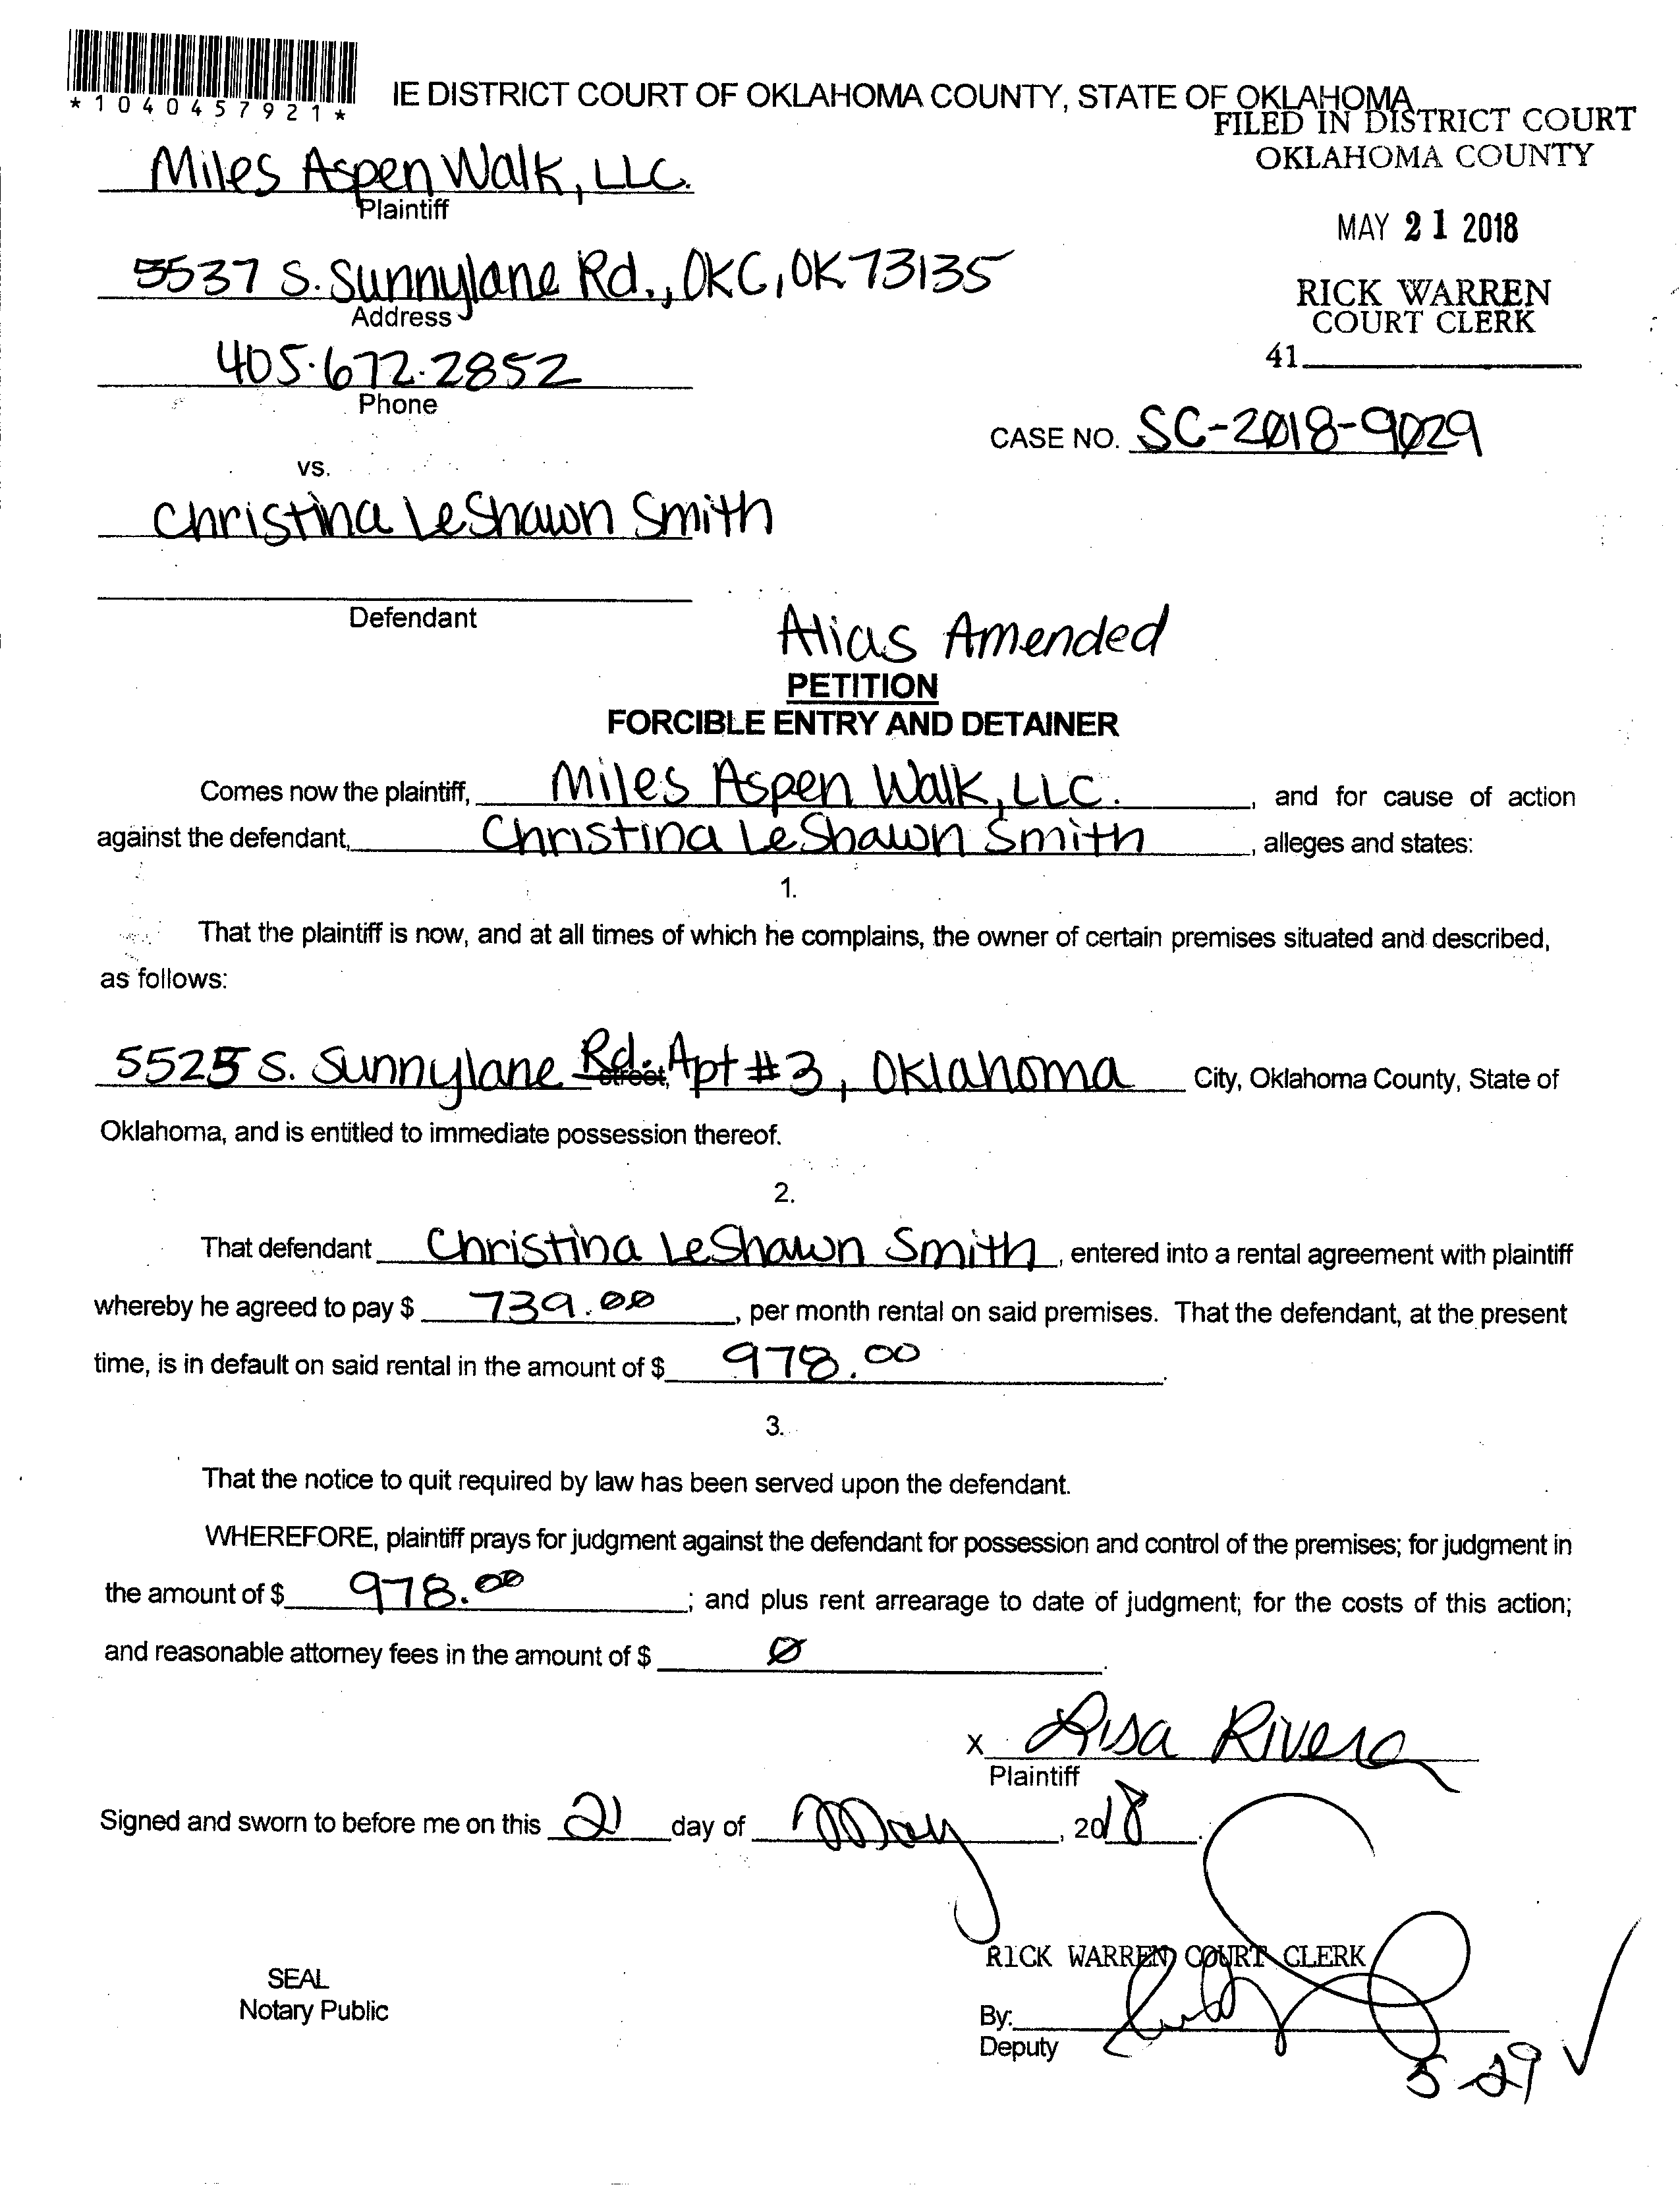 *1040457921*
IE DISTRICT COURT OF OKLAHOMA COUNTY, STATE OF OKLAHOMA
FILED IN DISTRICT COURT
OKLAHOMA COUNTY
Miles Aspen Walk, LLC.
Plaintiff
MAY 21 2018
5537 S. Sunnylane Rd., OKC, OK 73135
Address
RICK WARREN
COURT CLERK
405.672.2852
Phone
41
CASE NO. SC-2018-9029
vs.
Christina LeShawn Smith
Defendant
Alias Amended
PETITION
FORCIBLE ENTRY AND DETAINER
Comes now the plaintiff, Miles Aspen Walk, LLC. , and for cause of action
against the defendant, Christina LeShawn Smith , alleges and states:
1.
That the plaintiff is now, and at all times of which he complains, the owner of certain premises situated and described,
as follows:
5525 S. Sunnylane Rd. street, Apt #3, Oklahoma City, Oklahoma County, State of
Oklahoma, and is entitled to immediate possession thereof.
2.
That defendant Christina LeShawn Smith , entered into a rental agreement with plaintiff
whereby he agreed to pay $ 739.00 , per month rental on said premises. That the defendant, at the present
time, is in default on said rental in the amount of $ 978.00 .
3.
That the notice to quit required by law has been served upon the defendant.
WHEREFORE, plaintiff prays for judgment against the defendant for possession and control of the premises; for judgment in
the amount of $ 978.00 ; and plus rent arrearage to date of judgment; for the costs of this action;
and reasonable attorney fees in the amount of $ Ø .
x Lisa Rivera
Plaintiff
Signed and sworn to before me on this 21 day of May , 2018 .
RICK WARREN COURT CLERK
SEAL
Notary Public
By:
Deputy
5-29 ✓